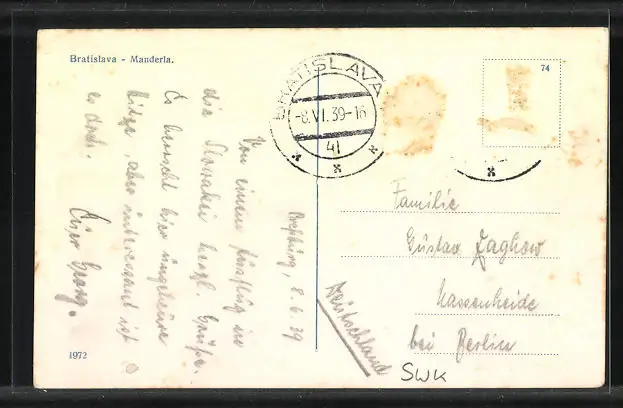 Bratislava - Manderla.
Preßburg, 8.6.39
Von einem Ausflug in
die Slowakei herzl. Grüße.
Es herrscht hier ungeheure
Hitze, aber interessant ist
es doch.
Euer Georg.
1972
BRATISLAVA
-8.VI.39-16
41
74
Familie
Gustav Zaghow
Nassenheide
bei Berlin
Deutschland
SWK